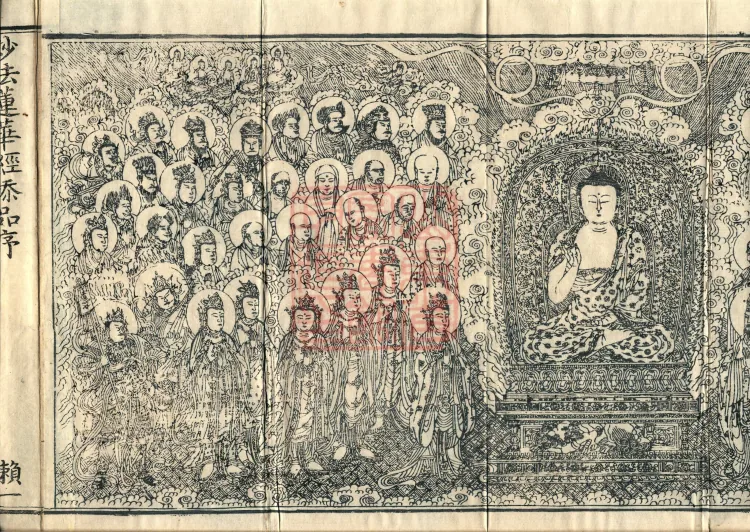 妙法蓮華經添品序
賴一